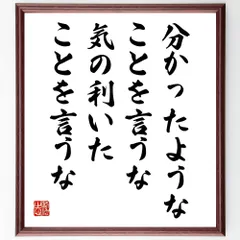 分かったような
ことを言うな
気の利いた
ことを言うな